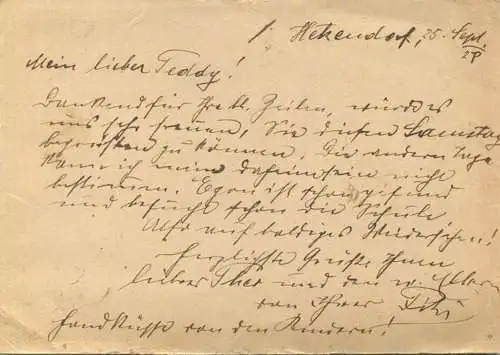 Hetzendorf, 25. Sept.
28
Mein lieber Teddy!
Dankend für Ihre lb. Zeilen, würde es
uns sehr freuen, Sie diesen Samstag
begrüßen zu können. Die anderen Tage
kann ich mein daheimsein nicht
bestimmen. Egon ist schon gesund
und besucht schon die Schule
Also auf baldiges Wiedersehen!
herzlichste Grüße Ihnen
lieber und den Eltern
von Ihrer
Handküsse von den Kindern!